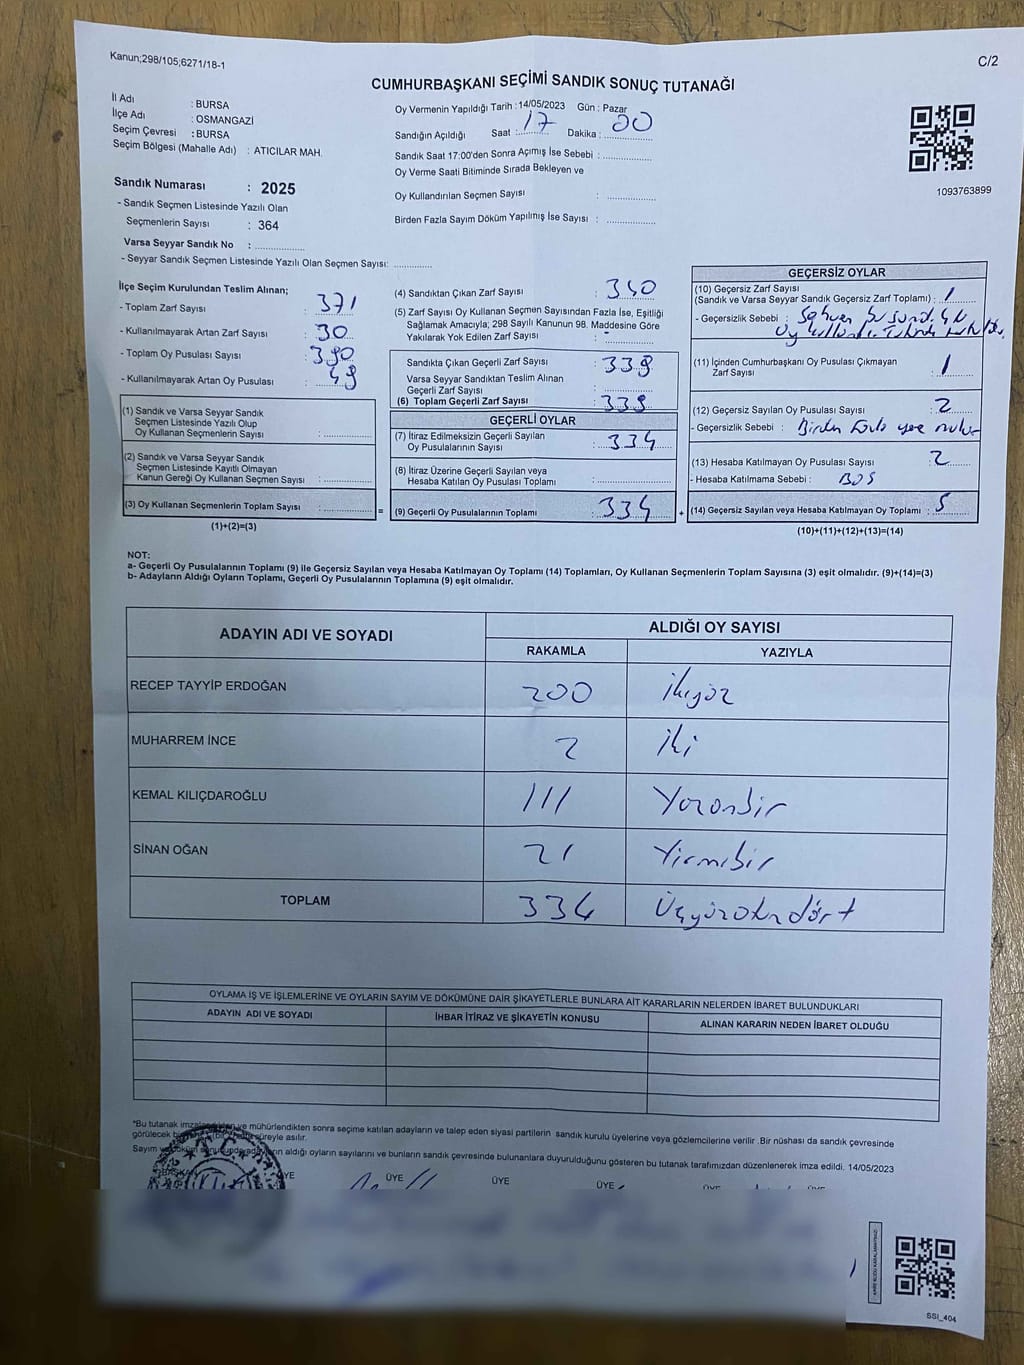 Kanun;298/105;6271/18-1
C/2
CUMHURBAŞKANI SEÇİMİ SANDIK SONUÇ TUTANAĞI
İl Adı : BURSA
İlçe Adı : OSMANGAZİ
Seçim Çevresi : BURSA
Seçim Bölgesi (Mahalle Adı) : ATICILAR MAH.
Sandık Numarası : 2025
- Sandık Seçmen Listesinde Yazılı Olan
Seçmenlerin Sayısı : 364
Varsa Seyyar Sandık No :
- Seyyar Sandık Seçmen Listesinde Yazılı Olan Seçmen Sayısı:
Oy Vermenin Yapıldığı Tarih : 14/05/2023 Gün : Pazar
Sandığın Açıldığı Saat : 17 Dakika : 00
Sandık Saat 17:00'den Sonra Açımış İse Sebebi :
Oy Verme Saati Bitiminde Sırada Bekleyen ve
Oy Kullandırılan Seçmen Sayısı :
Birden Fazla Sayım Döküm Yapılmış İse Sayısı :
1093763899
İlçe Seçim Kurulundan Teslim Alınan;
- Toplam Zarf Sayısı : 371
- Kullanılmayarak Artan Zarf Sayısı : 30
- Toplam Oy Pusulası Sayısı : 390
- Kullanılmayarak Artan Oy Pusulası : 49
(1) Sandık ve Varsa Seyyar Sandık
Seçmen Listesinde Yazılı Olup
Oy Kullanan Seçmenlerin Sayısı :
(2) Sandık ve Varsa Seyyar Sandık
Seçmen Listesinde Kayıtlı Olmayan
Kanun Gereği Oy Kullanan Seçmen Sayısı :
(3) Oy Kullanan Seçmenlerin Toplam Sayısı : =
(1)+(2)=(3)
(4) Sandıktan Çıkan Zarf Sayısı : 340
(5) Zarf Sayısı Oy Kullanan Seçmen Sayısından Fazla İse, Eşitliği
Sağlamak Amacıyla; 298 Sayılı Kanunun 98. Maddesine Göre
Yakılarak Yok Edilen Zarf Sayısı : -
Sandıkta Çıkan Geçerli Zarf Sayısı : 339
Varsa Seyyar Sandıktan Teslim Alınan
Geçerli Zarf Sayısı :
(6) Toplam Geçerli Zarf Sayısı : 339
GEÇERLİ OYLAR
(7) İtiraz Edilmeksizin Geçerli Sayılan
Oy Pusulalarının Sayısı : 334
(8) İtiraz Üzerine Geçerli Sayılan veya
Hesaba Katılan Oy Pusulası Toplamı :
(9) Geçerli Oy Pusulalarının Toplamı : 334 +
GEÇERSİZ OYLAR
(10) Geçersiz Zarf Sayısı
(Sandık ve Varsa Seyyar Sandık Geçersiz Zarf Toplamı) : 1
- Geçersizlik Sebebi :
(11) İçinden Cumhurbaşkanı Oy Pusulası Çıkmayan
Zarf Sayısı : 1
(12) Geçersiz Sayılan Oy Pusulası Sayısı : 2
- Geçersizlik Sebebi : Birden fazla yere mühür
(13) Hesaba Katılmayan Oy Pusulası Sayısı : 2
- Hesaba Katılmama Sebebi : BOŞ
(14) Geçersiz Sayılan veya Hesaba Katılmayan Oy Toplamı : 5
(10)+(11)+(12)+(13)=(14)
NOT:
a- Geçerli Oy Pusulalarının Toplamı (9) ile Geçersiz Sayılan veya Hesaba Katılmayan Oy Toplamı (14) Toplamları, Oy Kullanan Seçmenlerin Toplam Sayısına (3) eşit olmalıdır. (9)+(14)=(3)
b- Adayların Aldığı Oyların Toplamı, Geçerli Oy Pusulalarının Toplamına (9) eşit olmalıdır.
ADAYIN ADI VE SOYADI ALDIĞI OY SAYISI
RAKAMLA YAZIYLA
RECEP TAYYİP ERDOĞAN 200 ikiyüz
MUHARREM İNCE 2 iki
KEMAL KILIÇDAROĞLU 111 Yüzonbir
SİNAN OĞAN 21 Yirmibir
TOPLAM 334 Üçyüzotuzdört
OYLAMA İŞ VE İŞLEMLERİNE VE OYLARIN SAYIM VE DÖKÜMÜNE DAİR ŞİKAYETLERLE BUNLARA AİT KARARLARIN NELERDEN İBARET BULUNDUKLARI
ADAYIN ADI VE SOYADI İHBAR İTİRAZ VE ŞİKAYETİN KONUSU ALINAN KARARIN NEDEN İBARET OLDUĞU
*Bu tutanak imzalandıktan ve mühürlendikten sonra seçime katılan adayların ve talep eden siyasi partilerin sandık kurulu üyelerine veya gözlemcilerine verilir .Bir nüshası da sandık çevresinde
görülecek bir süreyle asılır.
Sayım ve döküm sonucunda adayların aldığı oyların sayılarını ve bunların sandık çevresinde bulunanlara duyurulduğunu gösteren bu tutanak tarafımızdan düzenlenerek imza edildi. 14/05/2023
BAŞKAN ÜYE ÜYE ÜYE ÜYE ÜYE ÜYE
SSI_404